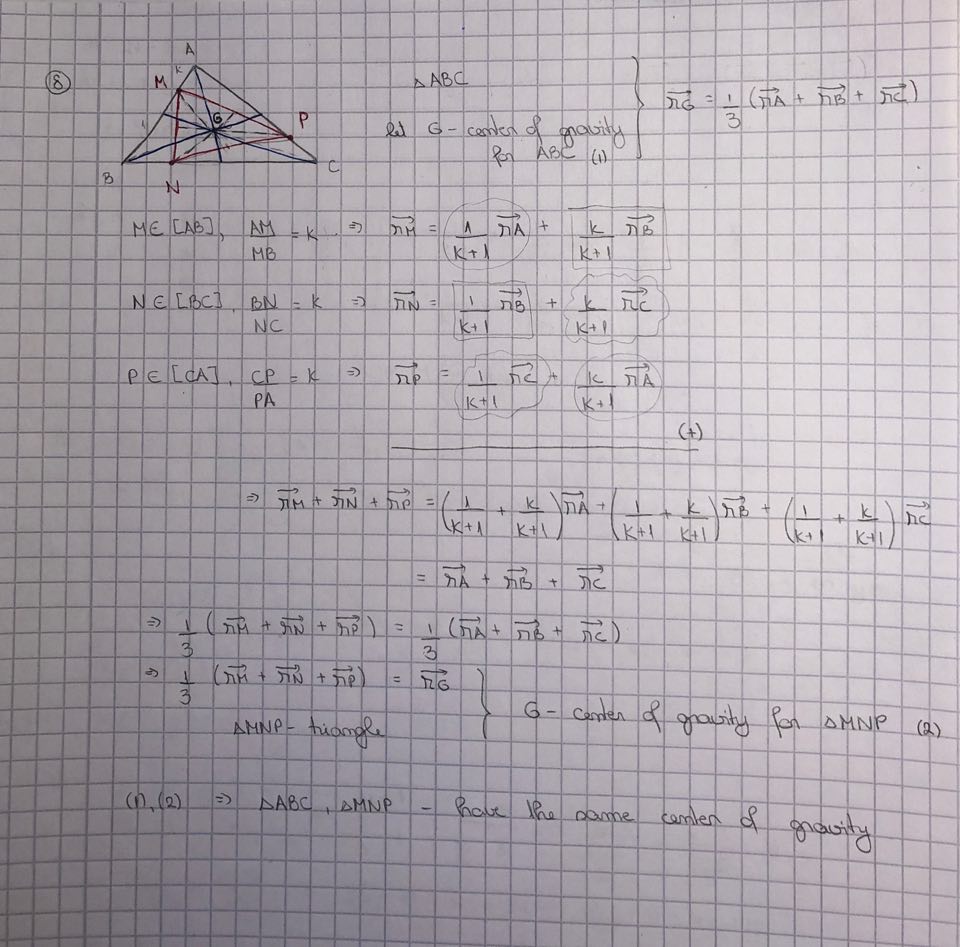 ⑧
A
K
M
G
P
B
N
C
△ABC
let G - center of gravity
for ABC (1)
$\vec{rG} = \frac{1}{3}(\vec{rA} + \vec{rB} + \vec{rC})$
M∈[AB], $\frac{AM}{MB} = k$ ⇒ $\vec{rM} = \frac{1}{k+1}\vec{rA} + \frac{k}{k+1}\vec{rB}$
N∈[BC], $\frac{BN}{NC} = k$ ⇒ $\vec{rN} = \frac{1}{k+1}\vec{rB} + \frac{k}{k+1}\vec{rC}$
P∈[CA], $\frac{CP}{PA} = k$ ⇒ $\vec{rP} = \frac{1}{k+1}\vec{rC} + \frac{k}{k+1}\vec{rA}$
(+)
⇒ $\vec{rM} + \vec{rN} + \vec{rP} = \left(\frac{1}{k+1} + \frac{k}{k+1}\right)\vec{rA} + \left(\frac{1}{k+1} + \frac{k}{k+1}\right)\vec{rB} + \left(\frac{1}{k+1} + \frac{k}{k+1}\right)\vec{rC}$
$= \vec{rA} + \vec{rB} + \vec{rC}$
⇒ $\frac{1}{3}(\vec{rM} + \vec{rN} + \vec{rP}) = \frac{1}{3}(\vec{rA} + \vec{rB} + \vec{rC})$
⇒ $\frac{1}{3}(\vec{rM} + \vec{rN} + \vec{rP}) = \vec{rG}$
△MNP - triangle
G - center of gravity for △MNP (2)
(1), (2) ⇒ △ABC, △MNP - have the same center of gravity